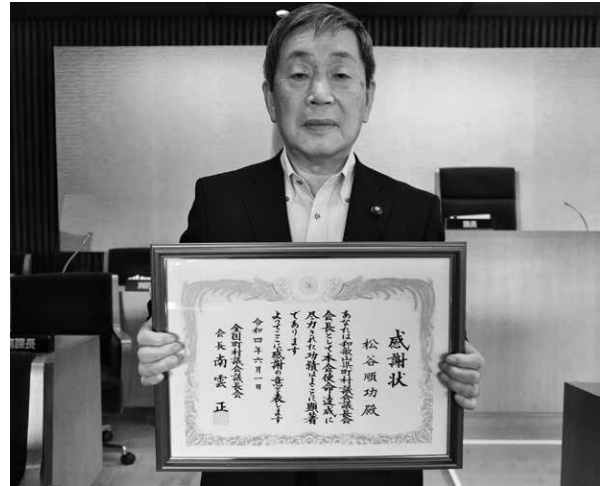 感謝状
松谷順功殿
あなたは和歌山県町村議会議長会
会長として本会使命達成に
尽力された功績はまことに顕著
であります
よってここに感謝の意を表します
令和四年六月一日
全国町村議会議長会
会長 南雲 正
議長
課長